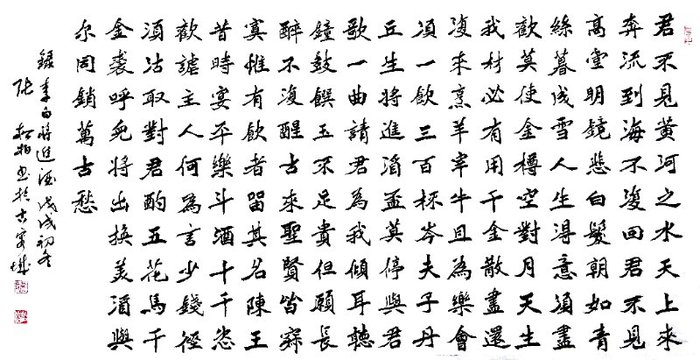 君不見黃河之水天上來
奔流到海不復回君不見
高堂明鏡悲白髮朝如青
絲暮成雪人生得意須盡
歡莫使金樽空對月天生
我材必有用千金散盡還
復來烹羊宰牛且為樂會
須一飲三百杯岑夫子丹
丘生將進酒盃莫停與君
歌一曲請君為我傾耳聽
鐘鼓饌玉不足貴但願長
醉不復醒古來聖賢皆寂
寞惟有飲者留其名陳王
昔時宴平樂斗酒十千恣
歡謔主人何為言少錢徑
須沽取對君酌五花馬千
金裘呼兒將出換美酒與
尔同銷萬古愁
錄李白將進酒戊戌初冬
張松柏書於古城